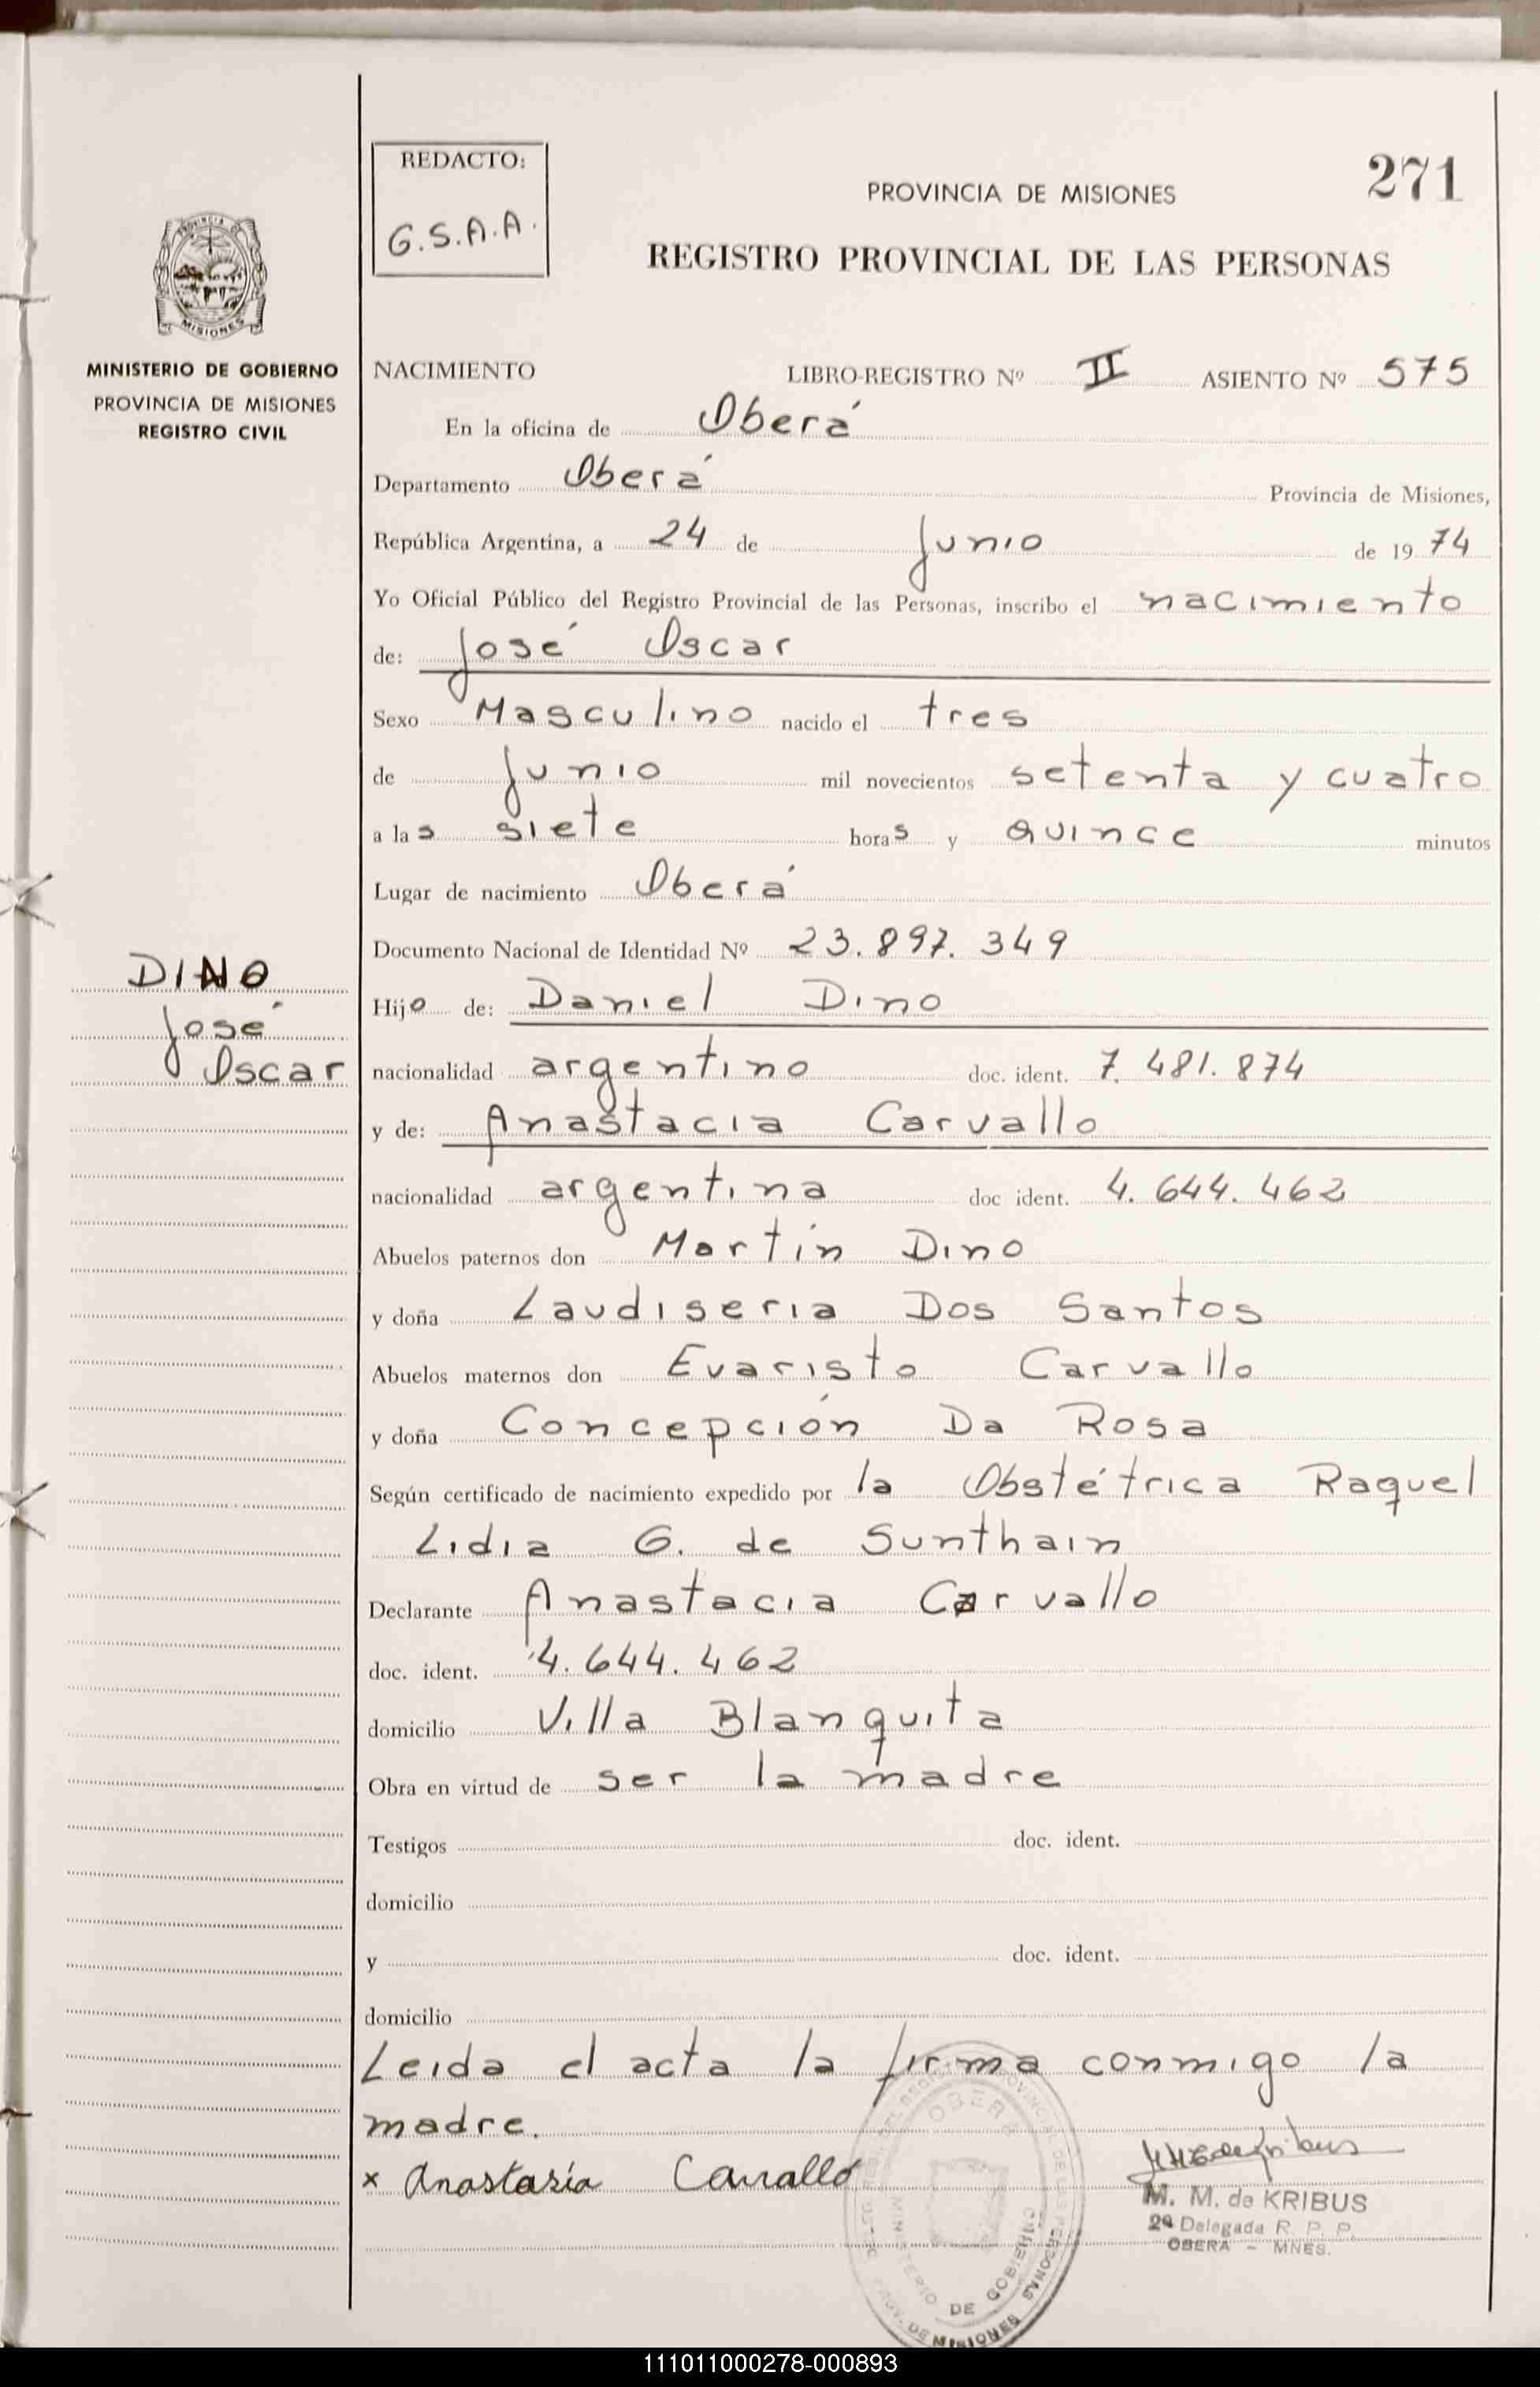 REDACTO:
G.S.A.A.
271
PROVINCIA DE MISIONES
REGISTRO PROVINCIAL DE LAS PERSONAS
PROVINCIA DE
MISIONES
MINISTERIO DE GOBIERNO
PROVINCIA DE MISIONES
REGISTRO CIVIL
NACIMIENTO LIBRO-REGISTRO Nº II ASIENTO Nº 575
En la oficina de Oberá
Departamento Oberá Provincia de Misiones,
República Argentina, a 24 de Junio de 1974
Yo Oficial Público del Registro Provincial de las Personas, inscribo el nacimiento
de: José Oscar
Sexo Masculino nacido el tres
de Junio mil novecientos setenta y cuatro
a las siete horas y quince minutos
Lugar de nacimiento Oberá
Documento Nacional de Identidad Nº 23.897.349
DINO
José
Oscar
Hijo de: Daniel Dino
nacionalidad argentino doc. ident. 7.481.874
y de: Anastacia Carvallo
nacionalidad argentina doc ident. 4.644.462
Abuelos paternos don Martín Dino
y doña Laudiseria Dos Santos
Abuelos maternos don Evaristo Carvallo
y doña Concepción Da Rosa
Según certificado de nacimiento expedido por la Obstétrica Raquel
Lidia G. de Sunthain
Declarante Anastacia Carvallo
doc. ident. 4.644.462
domicilio Villa Blanquita
Obra en virtud de ser la madre
Testigos doc. ident.
domicilio
y doc. ident.
domicilio
Leida el acta la firma conmigo la
madre.
x Anastasía Carvallo
M. M. de KRIBUS
2ª Delegada R. P. P.
OBERA - MNES.
OBERA
MINISTERIO DE GOBIERNO
PROV. DE MISIONES
111011000278-000893